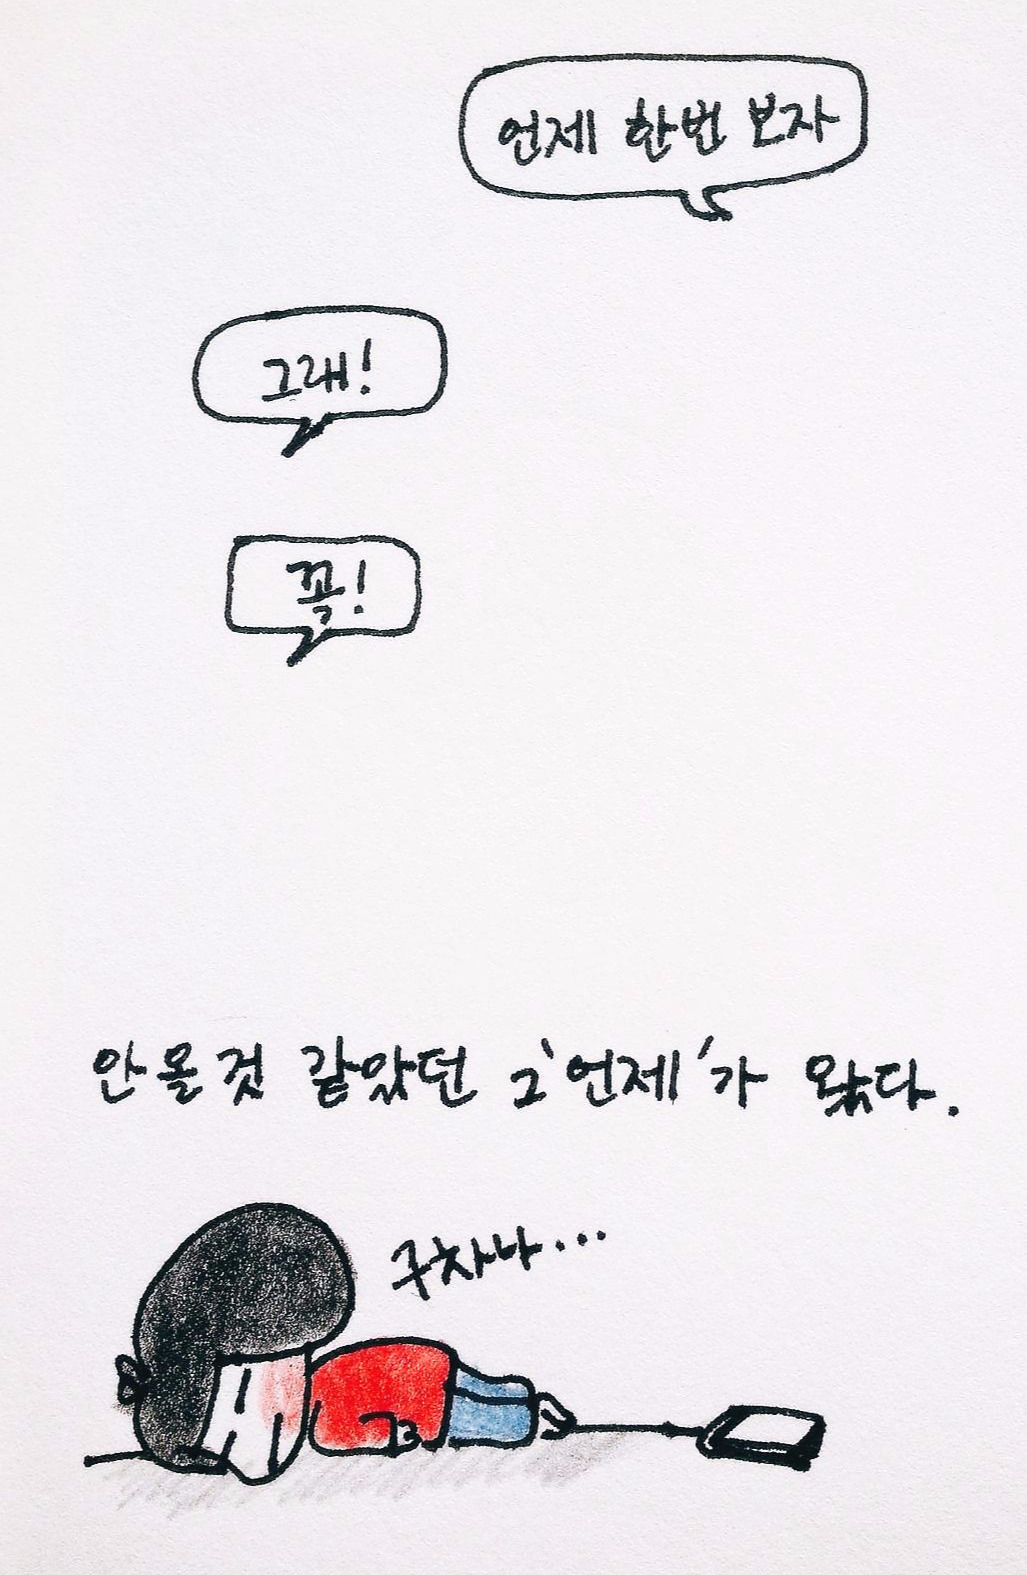 언제 한번 보자
그래!
꼭!
안올것 같았던 그'언제'가 왔다.
구차나...